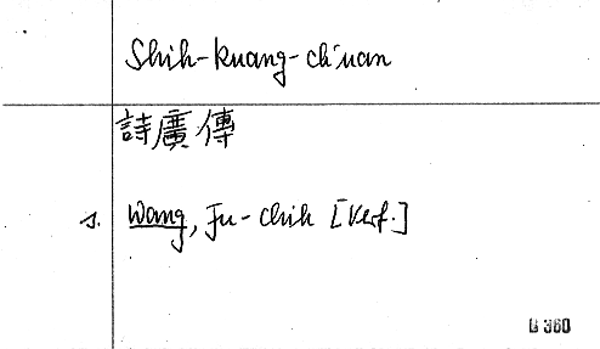 Shih-kuang-ch'uan
詩廣傳
s. Wang, Fu-chih [Verf.]
B 360